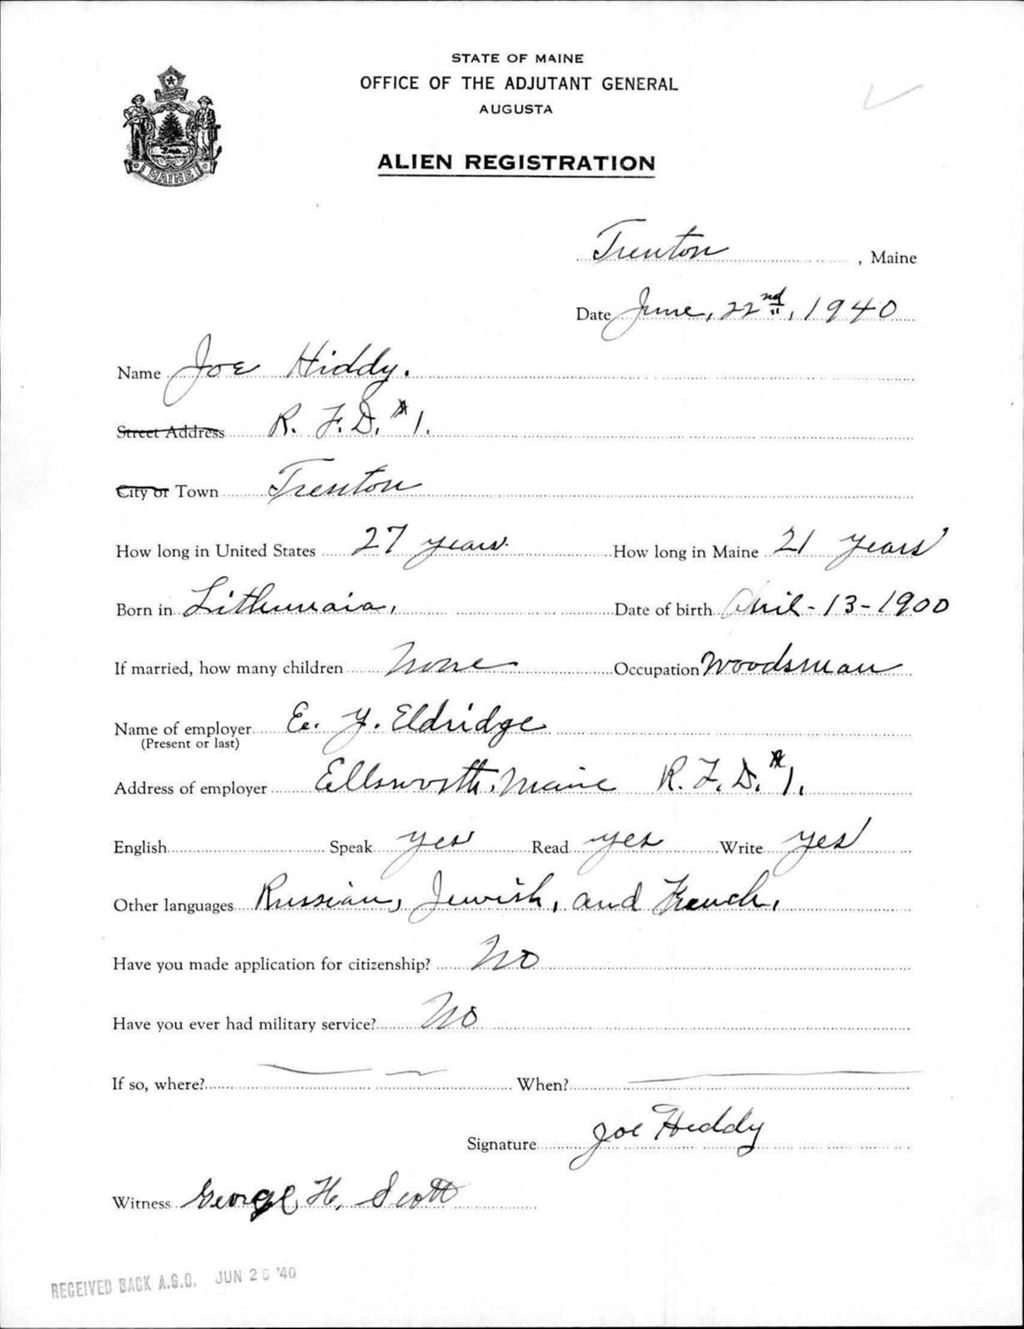 STATE OF MAINE
OFFICE OF THE ADJUTANT GENERAL
AUGUSTA
ALIEN REGISTRATION
MAINE
Trenton, Maine
Date June, 22nd, 1940
Name Joe Hiddy.
Street Address R. F. D. #1.
City or Town Trenton
How long in United States 27 years. How long in Maine 21 years
Born in Lithunaia, Date of birth April - 13 - 1900
If married, how many children None Occupation Woodsman
Name of employer E. Y. Eldridge
(Present or last)
Address of employer Ellsworth, Maine R. F. D. #1.
English Speak yes Read yes Write yes
Other languages Russian, Jewish, and French,
Have you made application for citizenship? No
Have you ever had military service? No
If so, where? When?
Signature Joe Hiddy
Witness George H. Scott
RECEIVED BACK A.G.O. JUN 26 '40